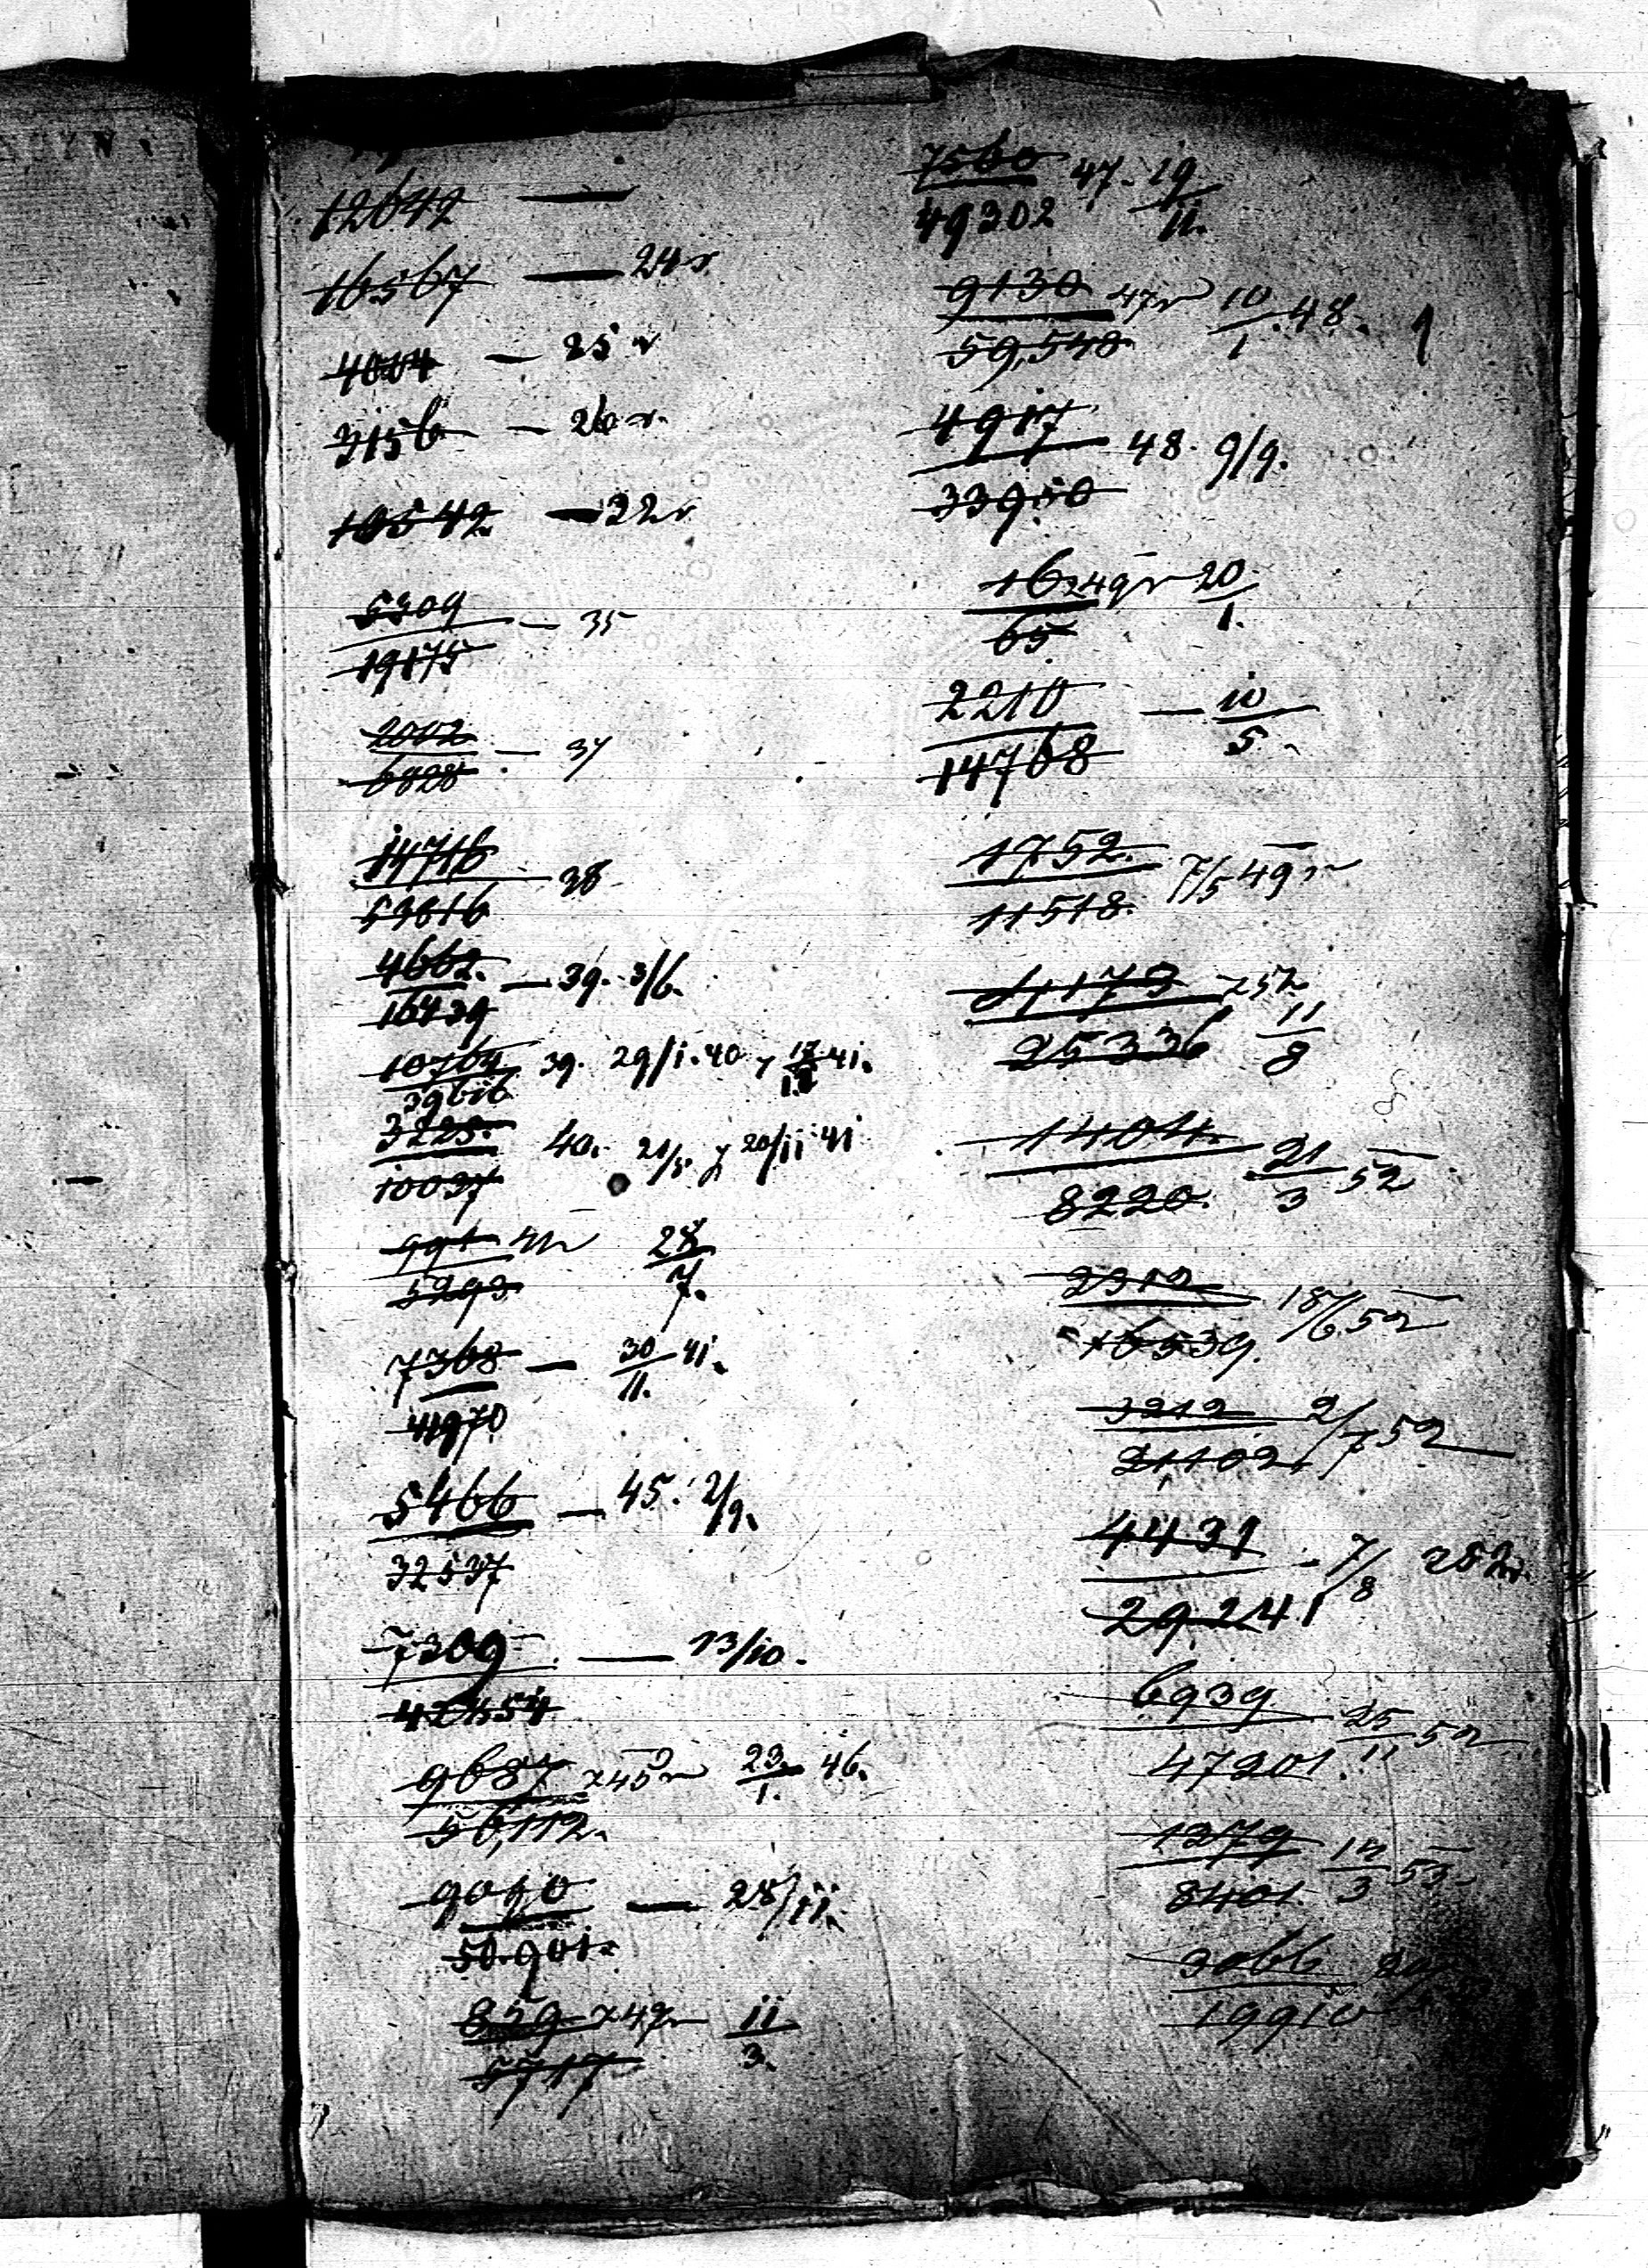 12642 —
16567 — 24 г.
4004 — 25 г
3156 — 26 г.
10542 — 32 г
5309 — 35
19175
2012 — 37
6828
14716 — 38
53616
4662. — 39. 3/6.
16439
10764 39. 29/i. 40 17/12 41.
39616
3225. 40. 20/ii 41
10037
991 41 г 28/7.
5293
7368 — 30/11. 41.
41970
5466 — 45. 2/9.
32537
7309 — 13/10.
9687 г 45 г 23/1. 46.
56,112.
9090 — 28/ii.
50.901.
859 г 47 г ii/3.
5717
7560 47. 19/11.
49302
9130 47 г 10/1. 48.
59,540.
4917 48. 9/9.
33950
162 49 г 20/1.
65
2210 — 10/5
14768
1752. 7/5 49 г
11518.
4173 г 52 11/8
25336
1404. 21/3 52
8220.
2312 18/6 52
16539.
3212 2/7 52
21102
4431 - 7/8 г 52 г.
29.241
6939 25/11 52
47201.
1279 53
8401
3066
19910